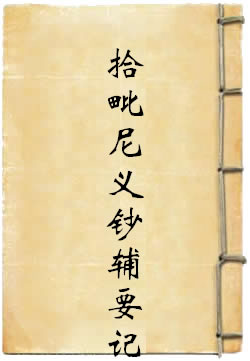 拾毗尼义钞辅要记